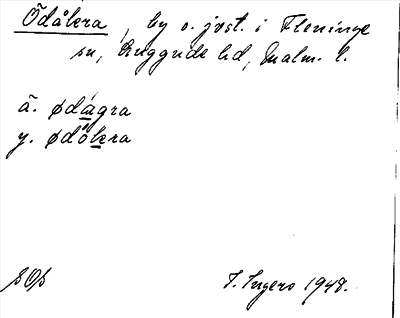 Ödåkra, by o. jvst. i Fleninge
sn, Luggude hd, Malm. l.
ä. ødågra
y. ødåkra
SOp
I. Ingers 1948.